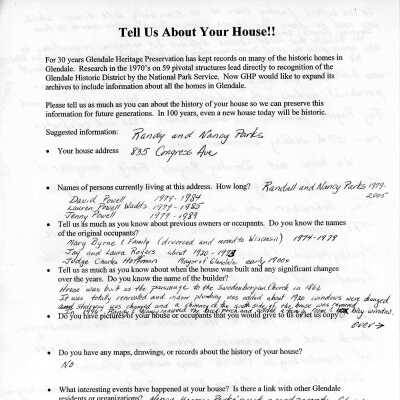 Tell Us About Your House!!
For 30 years Glendale Heritage Preservation has kept records on many of the historic homes in
Glendale. Research in the 1970's on 59 pivotal structures lead directly to recognition of the
Glendale Historic District by the National Park Service. Now GHP would like to expand its
archives to include information about all the homes in Glendale.
Please tell us as much as you can about the history of your house so we can preserve this
information for future generations. In 100 years, even a new house today will be historic.
Suggested information: Randy and Nancy Parks
• Your house address 835 Congress Ave
• Names of persons currently living at this address. How long? Randall and Nancy Parks 1979-
2005
David Powell 1979-1984
Lauren Powell 1979-1985
Jenny Powell 1979-1989
• Tell us as much as you know about previous owners or occupants. Do you know the names
of the original occupants?
Mary Byrne & Family (divorced and moved to Wisconsin) 1974-1978
Jay and Laura Rogers about 1920-
Judge Charles Mayor of Glendale early 1900s
• Tell us as much as you know about when the house was built and any significant changes
over the years. Do you know the name of the builder?
House was built as the parsonage to the Swedenborgian Church in
It was totally renovated and indoor plumbing was added about 1920 windows were changed
and stairway was changed and a chimney on the south side of the house was removed
In Randy & Nancy removed the back porch and added a family room & bay window.
• Do you have pictures of your house or occupants that you would give to us or let us copy?
over →
• Do you have any maps, drawings, or records about the history of your house?
NO
• What interesting events have happened at your house? Is there a link with other Glendale
residents or organizations?